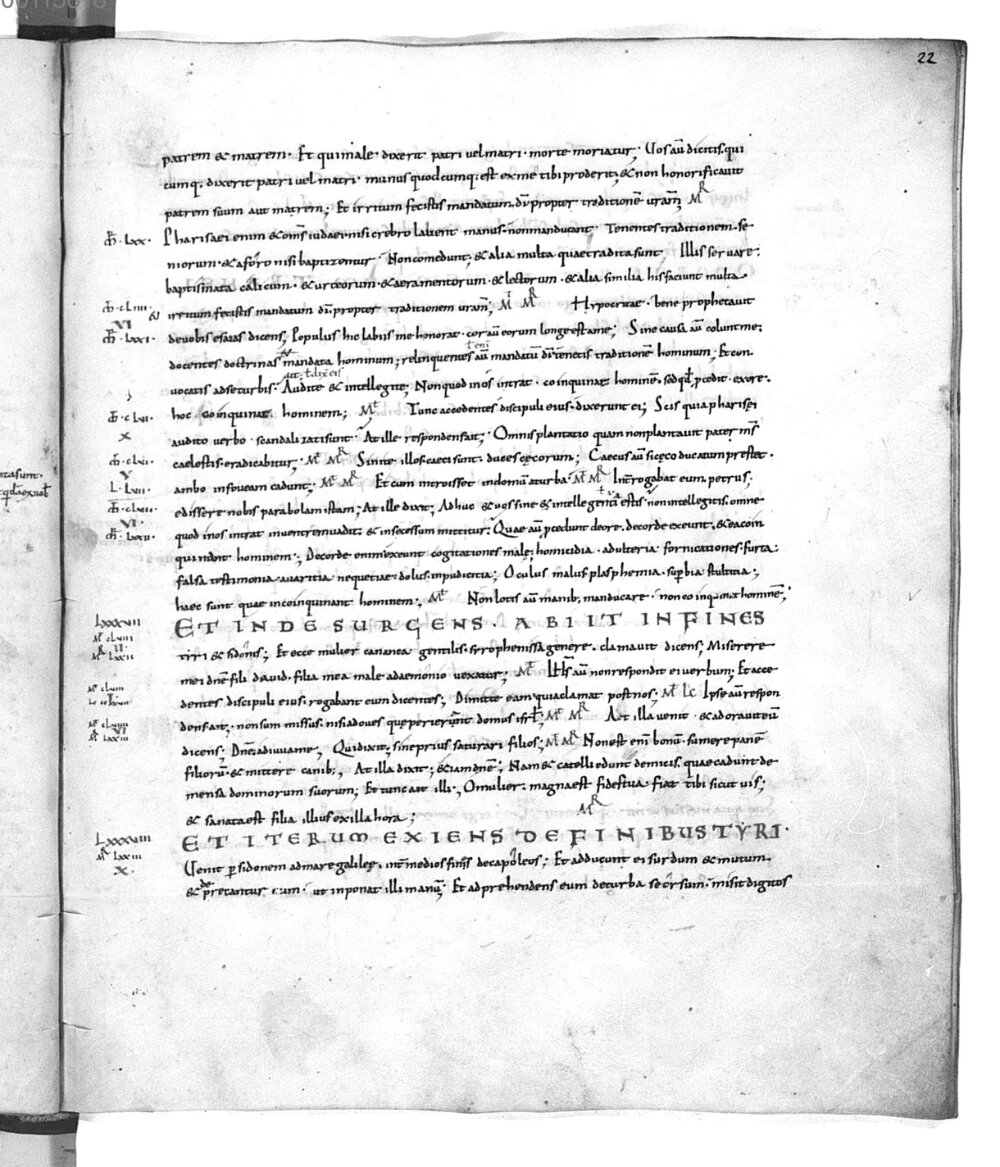 22
patrem & matrem · Et qui male · dixerit patri vel matri · morte moriatur; Uos aū dicitis · qui
cumq; dixerit patri vel matri · munus quodcumq: est ex me tibi proderit; & non honorificavit
patrem suum aut matrem; Et irritum fecistis mandatum · dī propter traditionē urām; MR
Pharisaei enim & om̄s iudaei nisi crebro laverit manus · non manducant · Tenentes traditionem · se
niorum · & a foro nisi baptizentur · Non comedunt; & alia multa quae tradita sunt · Illis servare ·
baptismata calicum · & urceorum · & aeramentorum · & lectorum · & alia similia his faciunt multa ·
& irritum fecistis mandatum dī propter traditionem uram; Mt MR Hypocritae · bene prophetavit
de vobis esaias dicens, Populus hic labiis me honorat · cor aū eorum longe est a me; Sine causa aū colunt me:
docentes doctrinas & mandata hominum; relinquentes aū mandatū dī tenetis traditionē hominum; Et con
vocatis ad se turbis · Audite & intellegite; Non quod in os intrat · coinquinat hominē · sed qđ pcedit · ex ore ·
hoc coinquinat hominem; Mt Tunc accedentes discipuli eius · dixerunt ei; Scis quia pharisei
audito verbo · scandalizati sunt · At ille respondens ait; Omnis plantatio quam non plantavit pater ms
caelestis · eradicabitur; Mt MR Sinite illos · caeci sunt · duces cęcorum; Caecus aū si cęco ducatum prestet ·
ambo in foveam cadunt; Mt MR Et cum introisset in domum a turba · Mt MR Interrogabat eum · petrus;
edissere nobis parabolam istam; At ille dixit; Adhuc & uos sine & intellegentia estis · non intellegitis · omne
quod in os intrat in ventrem vadit · & in secessum mittitur · Quae aū pcedunt de ore · de corde exeunt · & ea coin
quinant hominem; De corde enim exeunt cogitationes malę; homicidia · adulteria · fornicationes · furta:
falsa testimonia · avaritia nequetiae · dolus · inpudicitia; Oculus malus · plasphemia · supbia stultitia;
haec sunt quae incoinquinant hominem; Mt Non lotis aū manib; manducare · non coinquinat hominē;
ET INDE SURGENS · ABIIT IN FINES
tiri & sidonis; Et ecce mulier cananea gentilis · syrophenissa genere · clamavit dicens; Miserere
mei dn̄e fili david · filia mea male a daemonio vexatur; Mt IHs aū non respondit ei verbum; Et acce
dentes discipuli eius · rogabant eum dicentes; Dimitte eam quia clamat post nos; Mt Lc Ipse aū respon
dens ait; non sum missus · nisi ad oves quę perierunt domus isrl; Mt MR At illa venit · & adoravit eū
dicens; Dn̄e adiuva me; Qui dixit; sine prius saturari filios; Mt MR Non est enī bonū · sumere panē
filiorū · & mittere canib; At illa dixit; & iam dn̄e; Nam & catelli edunt de micis · quae cadunt de
mensa dominorum suorum; Et tunc ait illi; O mulier · magna est fides tua · fiat tibi sicut vis;
& sanata est filia illius ex illa hora; MR
ET ITERUM EXIENS DE FINIBUS TYRI ·
Uenit p sidonem ad mare galilęę · int medios fines decapoleos; Et adducunt ei surdum & mutum ·
& deprecantur eum · ut inponat illi manū; Et adprehendens eum de turba seorsum · misit digitos